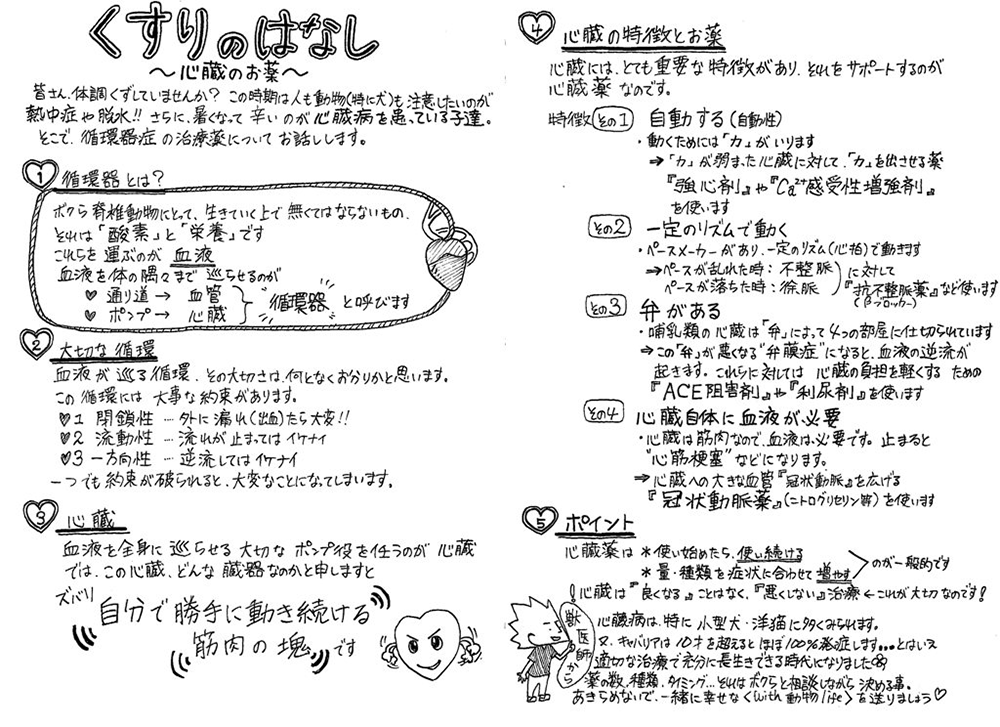 くすりのはなし
～心臓のお薬～
皆さん、体調くずしていませんか？ この時期は人も動物(特に犬)も注意したいのが
熱中症や脱水!! さらに、暑くなって辛いのが心臓病を患っている子達。
そこで、循環器症の治療薬についてお話しします。
1 循環器とは？
ボクら脊椎動物にとって、生きていく上で無くてはならないもの、
それは「酸素」と「栄養」です
これらを運ぶのが 血液
血液を体の隅々まで巡らせるのが
♥ 通り道 → 血管
♥ ポンプ → 心臓
"循環器" と呼びます
2 大切な循環
血液が巡る循環、その大切さは、何となくお分りかと思います。
この循環には大事な約束があります。
♥1 閉鎖性 … 外に漏れ(出血)たら大変!!
♥2 流動性 … 流れが止まってはイケナイ
♥3 一方向性 … 逆流してはイケナイ
一つでも約束が破られると、大変なことになってしまいます。
3 心臓
血液を全身に巡らせる大切なポンプ役を任うのが心臓
では、この心臓、どんな臓器なのかと申しますと
ズバリ
自分で勝手に動き続ける
筋肉の塊です
4 心臓の特徴とお薬
心臓には、とても重要な特徴があり、それをサポートするのが
心臓薬なのです。
特徴 その1 自動する(自動性)
・動くためには「力」がいります
⇒「力」が弱まった心臓に対して、「力」を出させる薬
『強心剤』や『Ca²⁺感受性増強剤』
を使います
その2 一定のリズムで動く
・ペースメーカーがあり、一定のリズム(心拍)で動きます
⇒ペースが乱れた時：不整脈
ペースが落ちた時：徐脈
に対して
『抗不整脈薬』など使います
(βブロッカー)
その3 弁がある
・哺乳類の心臓は「弁」によって4つの部屋に仕切られています
⇒この「弁」が悪くなる"弁膜症"になると、血液の逆流が
起きます。これらに対しては 心臓の負担を軽くする ための
『ACE阻害剤』や『利尿剤』を使います
その4 心臓自体に血液が必要
・心臓は筋肉なので、血液は必要です。止まると
"心筋梗塞"などになります。
⇒心臓への大きな血管『冠状動脈』を広げる
『冠状動脈薬』(ニトログリセリン等)を使います
5 ポイント
心臓薬は *使い始めたら、使い続ける
*量・種類を症状に合わせて増やす
のが一般的です
!心臓は『良くなる』ことはなく、『悪くしない』治療 ←これが大切なのです!
獣医師から
心臓病は、特に小型犬・洋猫に多くみられます。
又、キャバリアは10才を超えるとほぼ100%発症します…とはいえ
適切な治療で充分に長生きできる時代になりました
薬の数、種類、タイミング…それはボクらと相談しながら決める事。
あきらめないで、一緒に幸せな〈with 動物 life〉を送りましょう♡